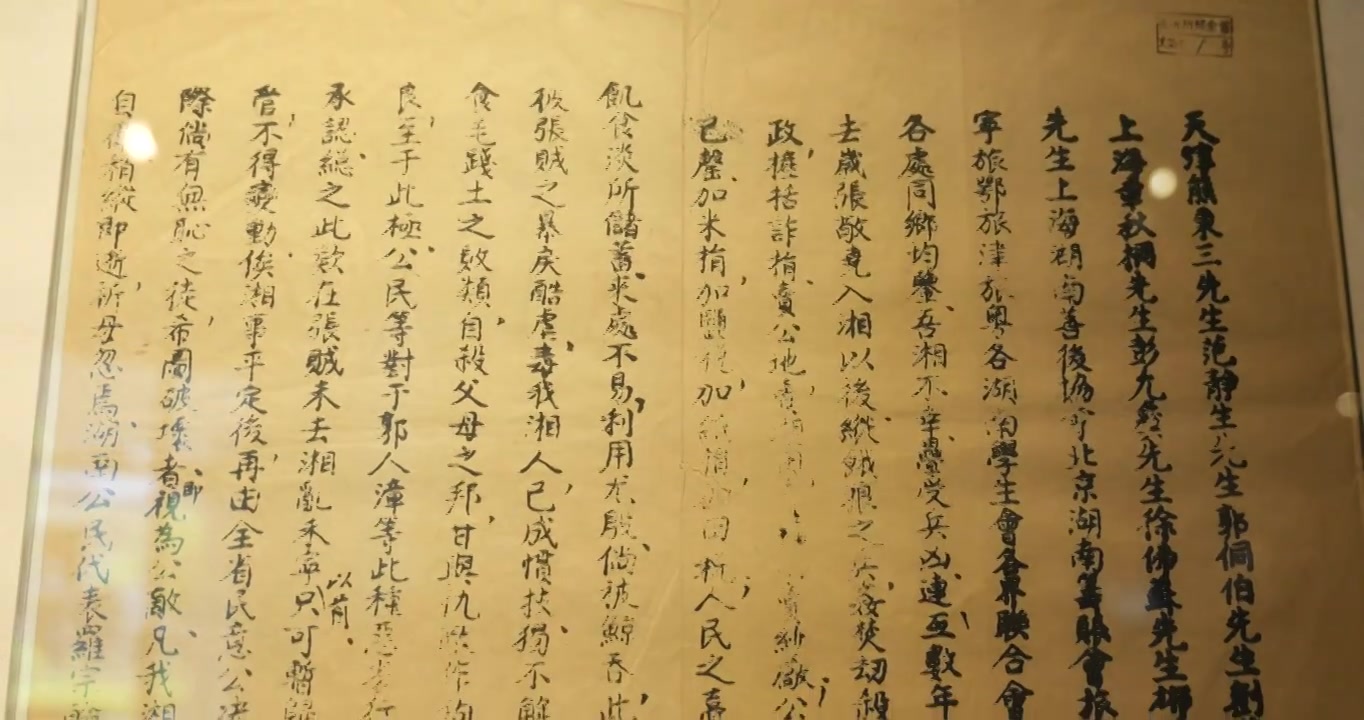 天津熊秉三先生范靜生先生郭侗伯先生劉
上海章秋桐先生彭九彝先生徐佛蘇先生
先生上海湖南善後協會北京湖南籌賑會旅
寧旅鄂旅津旅粤各湖南學生會各界聯合會
各處同鄉均鑒吾湘不幸疊受兵凶連互數年
去歲張敬堯入湘以後縱餓狼之兵奸焚劫殺
政搜括詐捐賣公地賣紗廠公
已罄加米捐加鹽税加人民之
飢食淡所儲蓄來處不易利用尤殷倘被鯨吞此
被張賊之暴戾酷虐毒我湘人已成慣技獨不解
食毛踐土之敗類自殺父母之邦甘與仇
良至于此極公民等對于郭人漳等此種惡劣行
承認總之此欵在張賊未去湘亂未寧以前只可暫歸
管不得變動俟湘事平定後再由全省民意公决
際倘有無恥之徒希圖破壞者即視為公敵凡我湘
自縱即逝所毋忽焉湖南公民代表羅宗翰